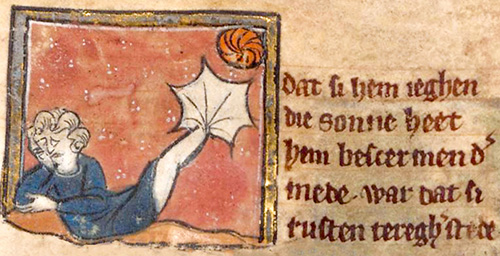 dat si hem ieghen
die sonne heet
hem bescermen dʼ
mede. war dat si
rusten teregh'stede